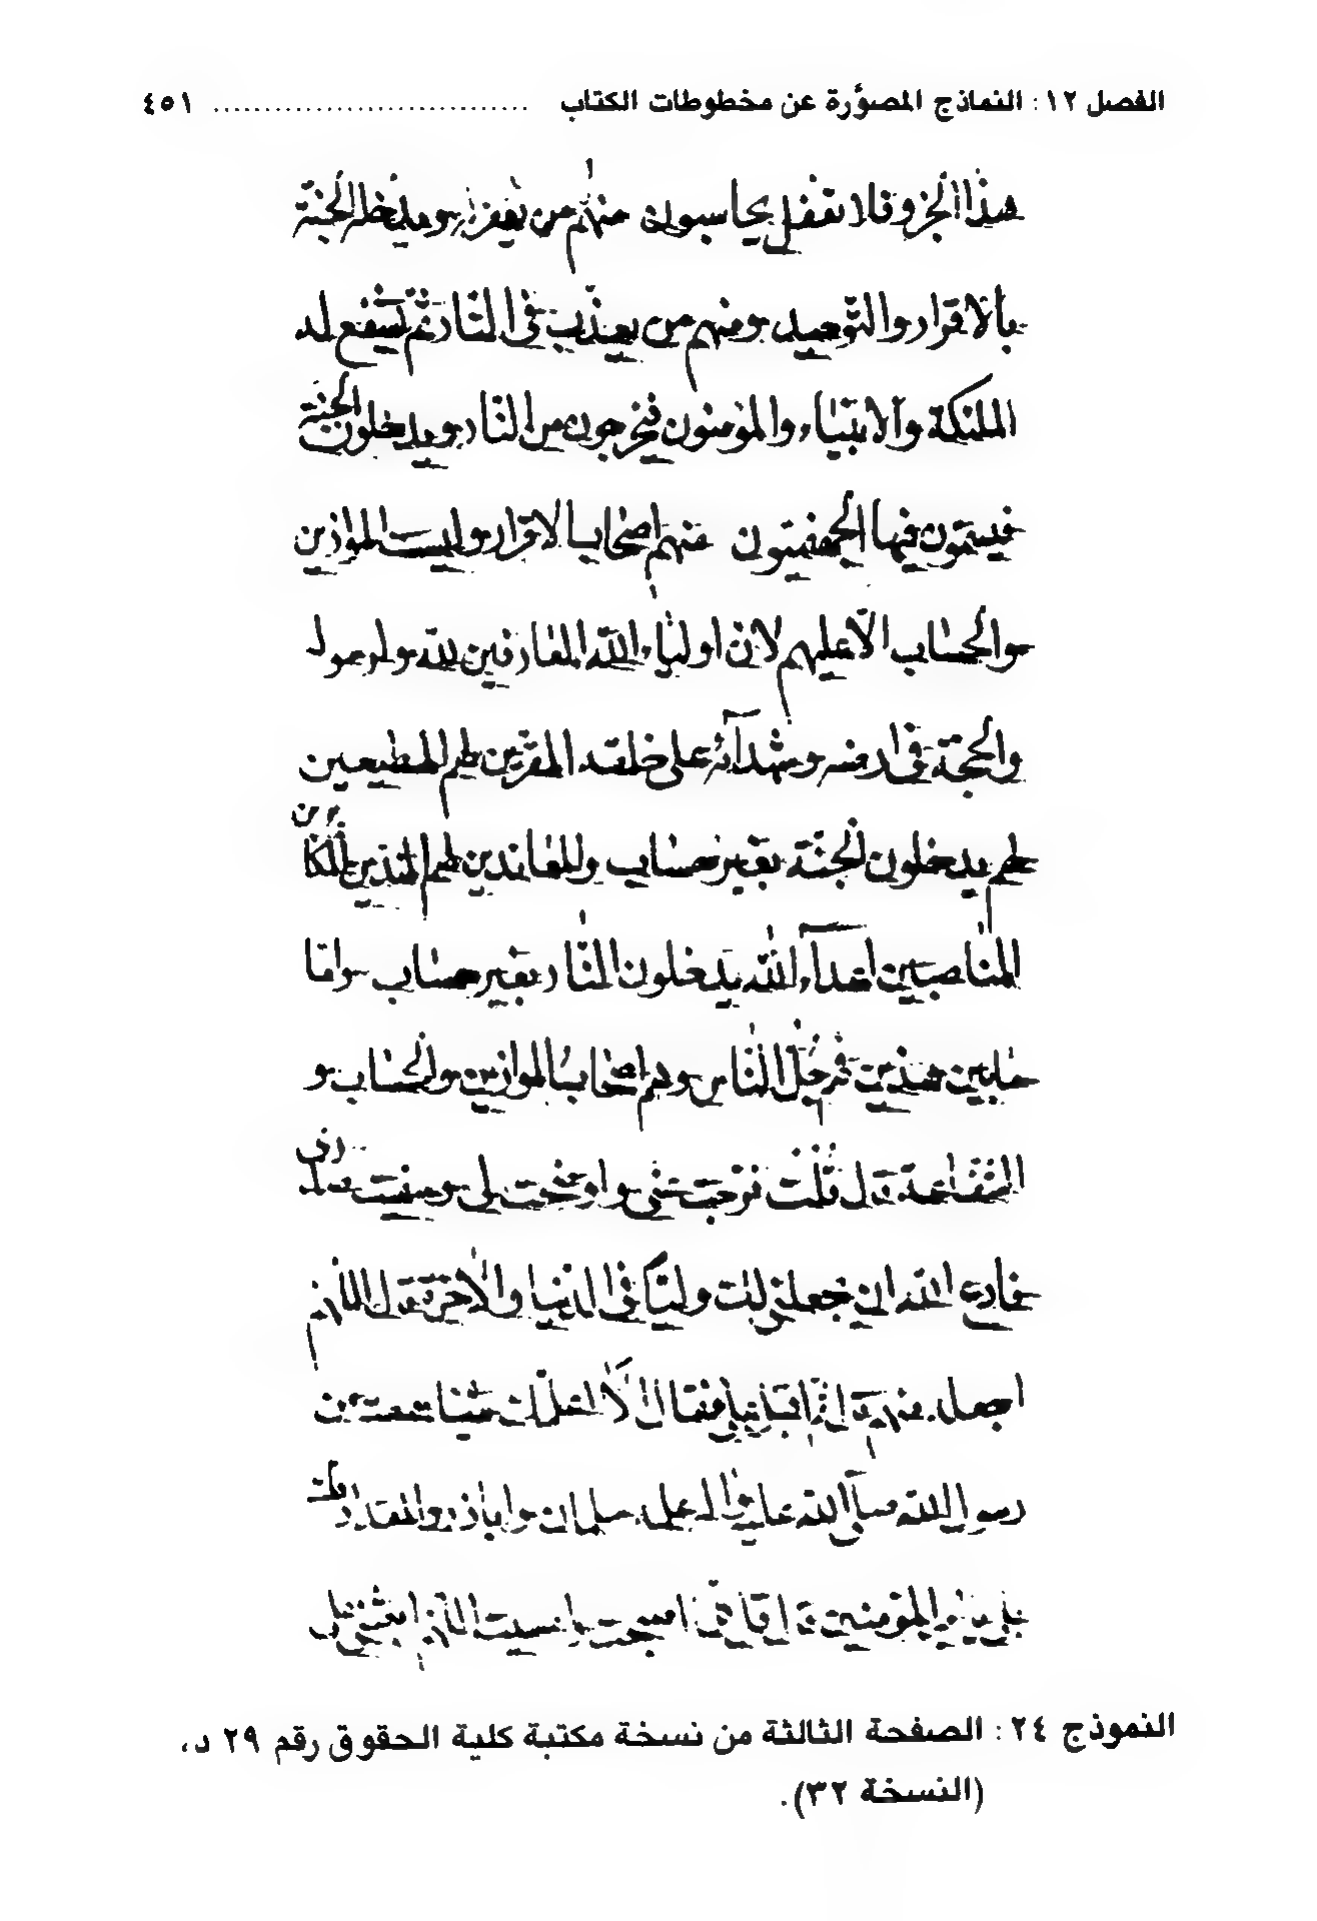 الفصل ١٢: النماذج المصوَّرة عن مخطوطات الكتاب .............................. ٤٥١
هذا الجزو فلا تغفل يحاسبون منهم من يغفر له ويدخله الجنّة
بالاقرار والتّوحيد ومنهم من يعذّب فى النّار ثمّ يشفع له
الملئكة والانبياء والمؤمنون فيخرجون من النّار ويدخلون الجنة
فيسمّون فيها الجهنميّون منهم اصحاب الاقرار وليست الموازين
والحساب الّا عليهم لانّ اولياء الله العارفين لله ولرسوله
والحجّة فى ارضه وشهدآئه على خلقه المقرّين لهم المطيعين
لهم يدخلون الجنّة بغير حساب والمعاندين لهم المنذرين المكابرين
المناصبين اعدآء الله يدخلون النّار بغير حساب وامّا
ما بين هذين فجلّ النّاس وهم اصحاب الموازين والحساب و
الشّفاعة قال قلت فرّجت عنّى واوضحت لى وشفيت صدرى
فادع الله ان يجعلنى لك وليّا فى الدّنيا والاخرة قال اللّهم
اجعله منهم قال ثمّ اقبل علىّ فقال الا اعلّمك شيئا سمعته من
رسول الله صلّى الله عليه واله علمه سلمان واباذر والمقداد قلت
بلى يا امير المؤمنين قال قل كلما اصبحت وامسيت اللّهم ابعثنى على
النموذج ٢٤: الصفحة الثالثة من نسخة مكتبة كلية الحقوق رقم ٢٩ د،
(النسخة ٣٢).